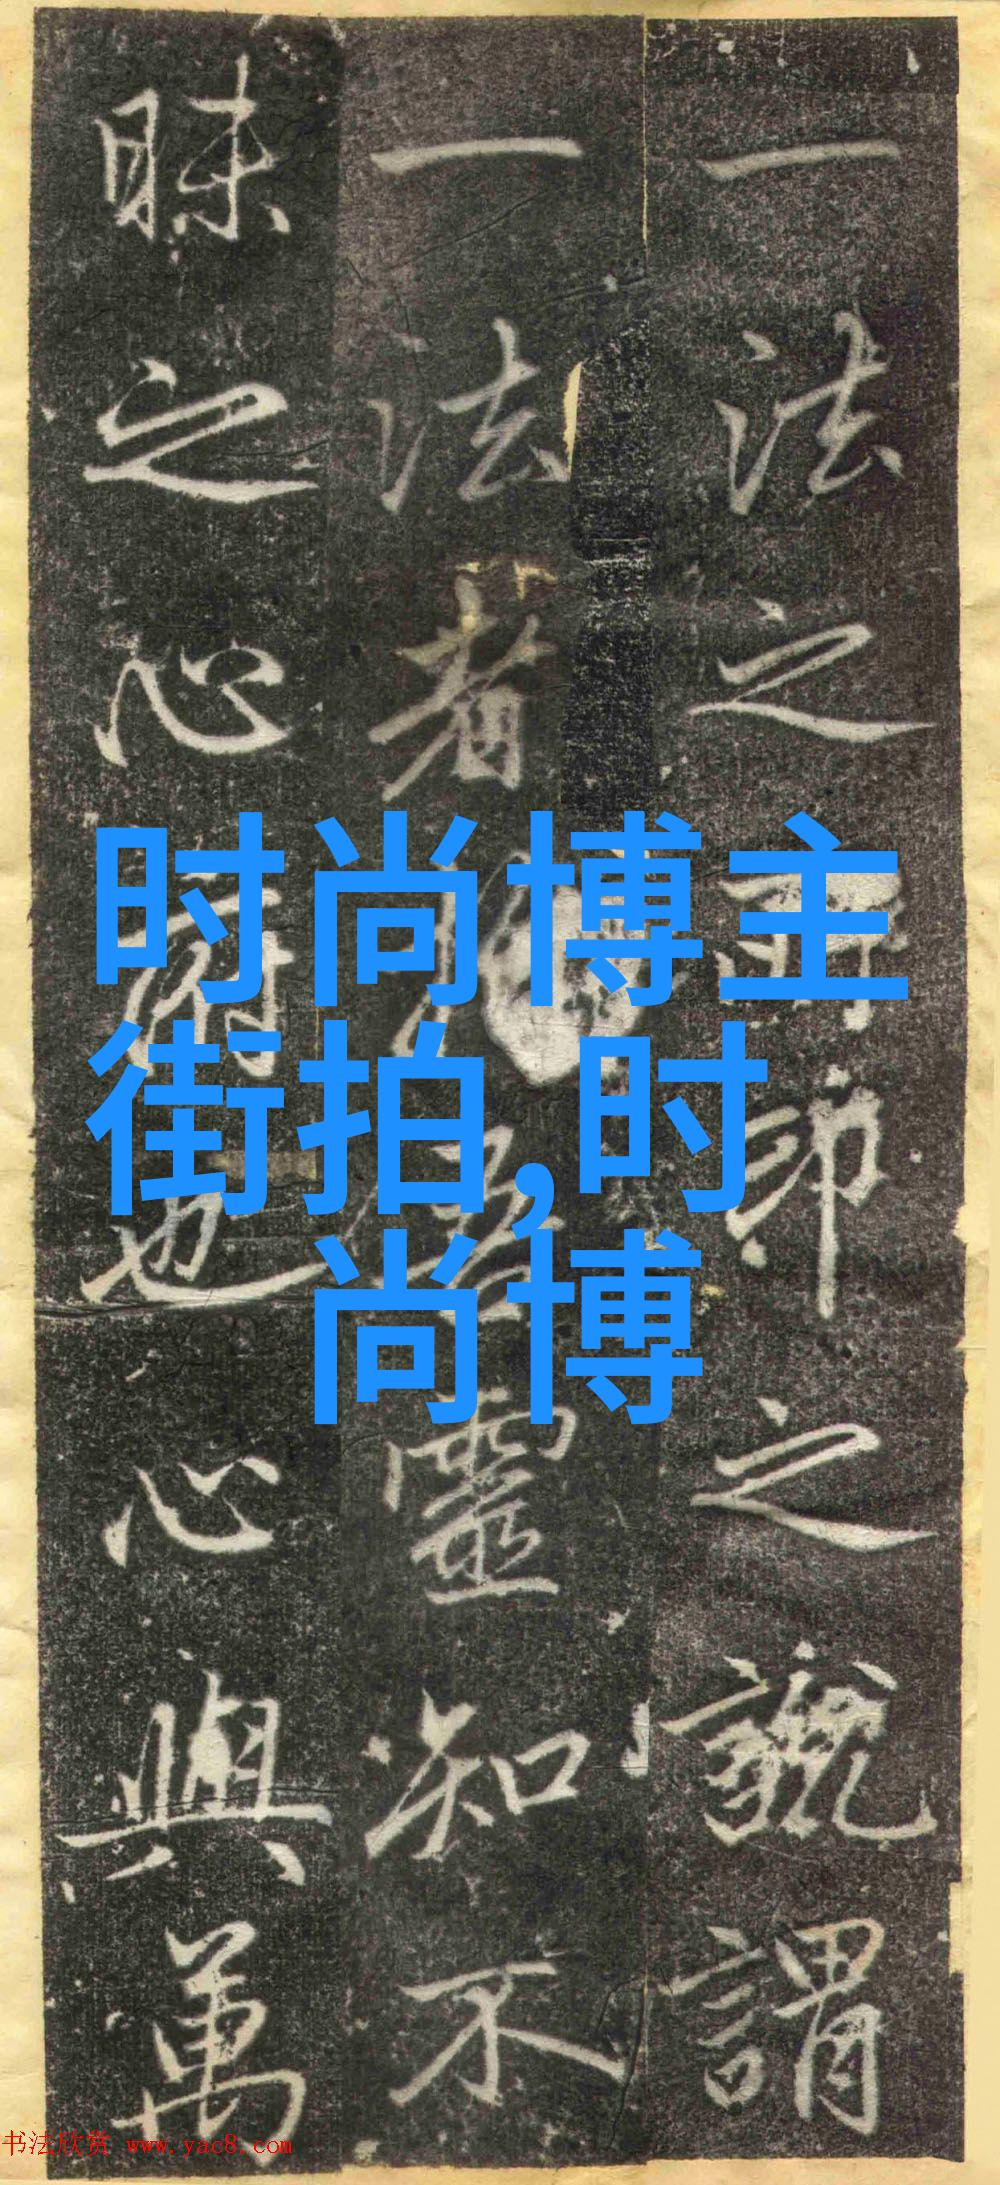 一法之印之謂
一法者靈知不
昧之心也心與萬
时尚博主
街拍,时
尚博
书法欣赏 www.yac8.com